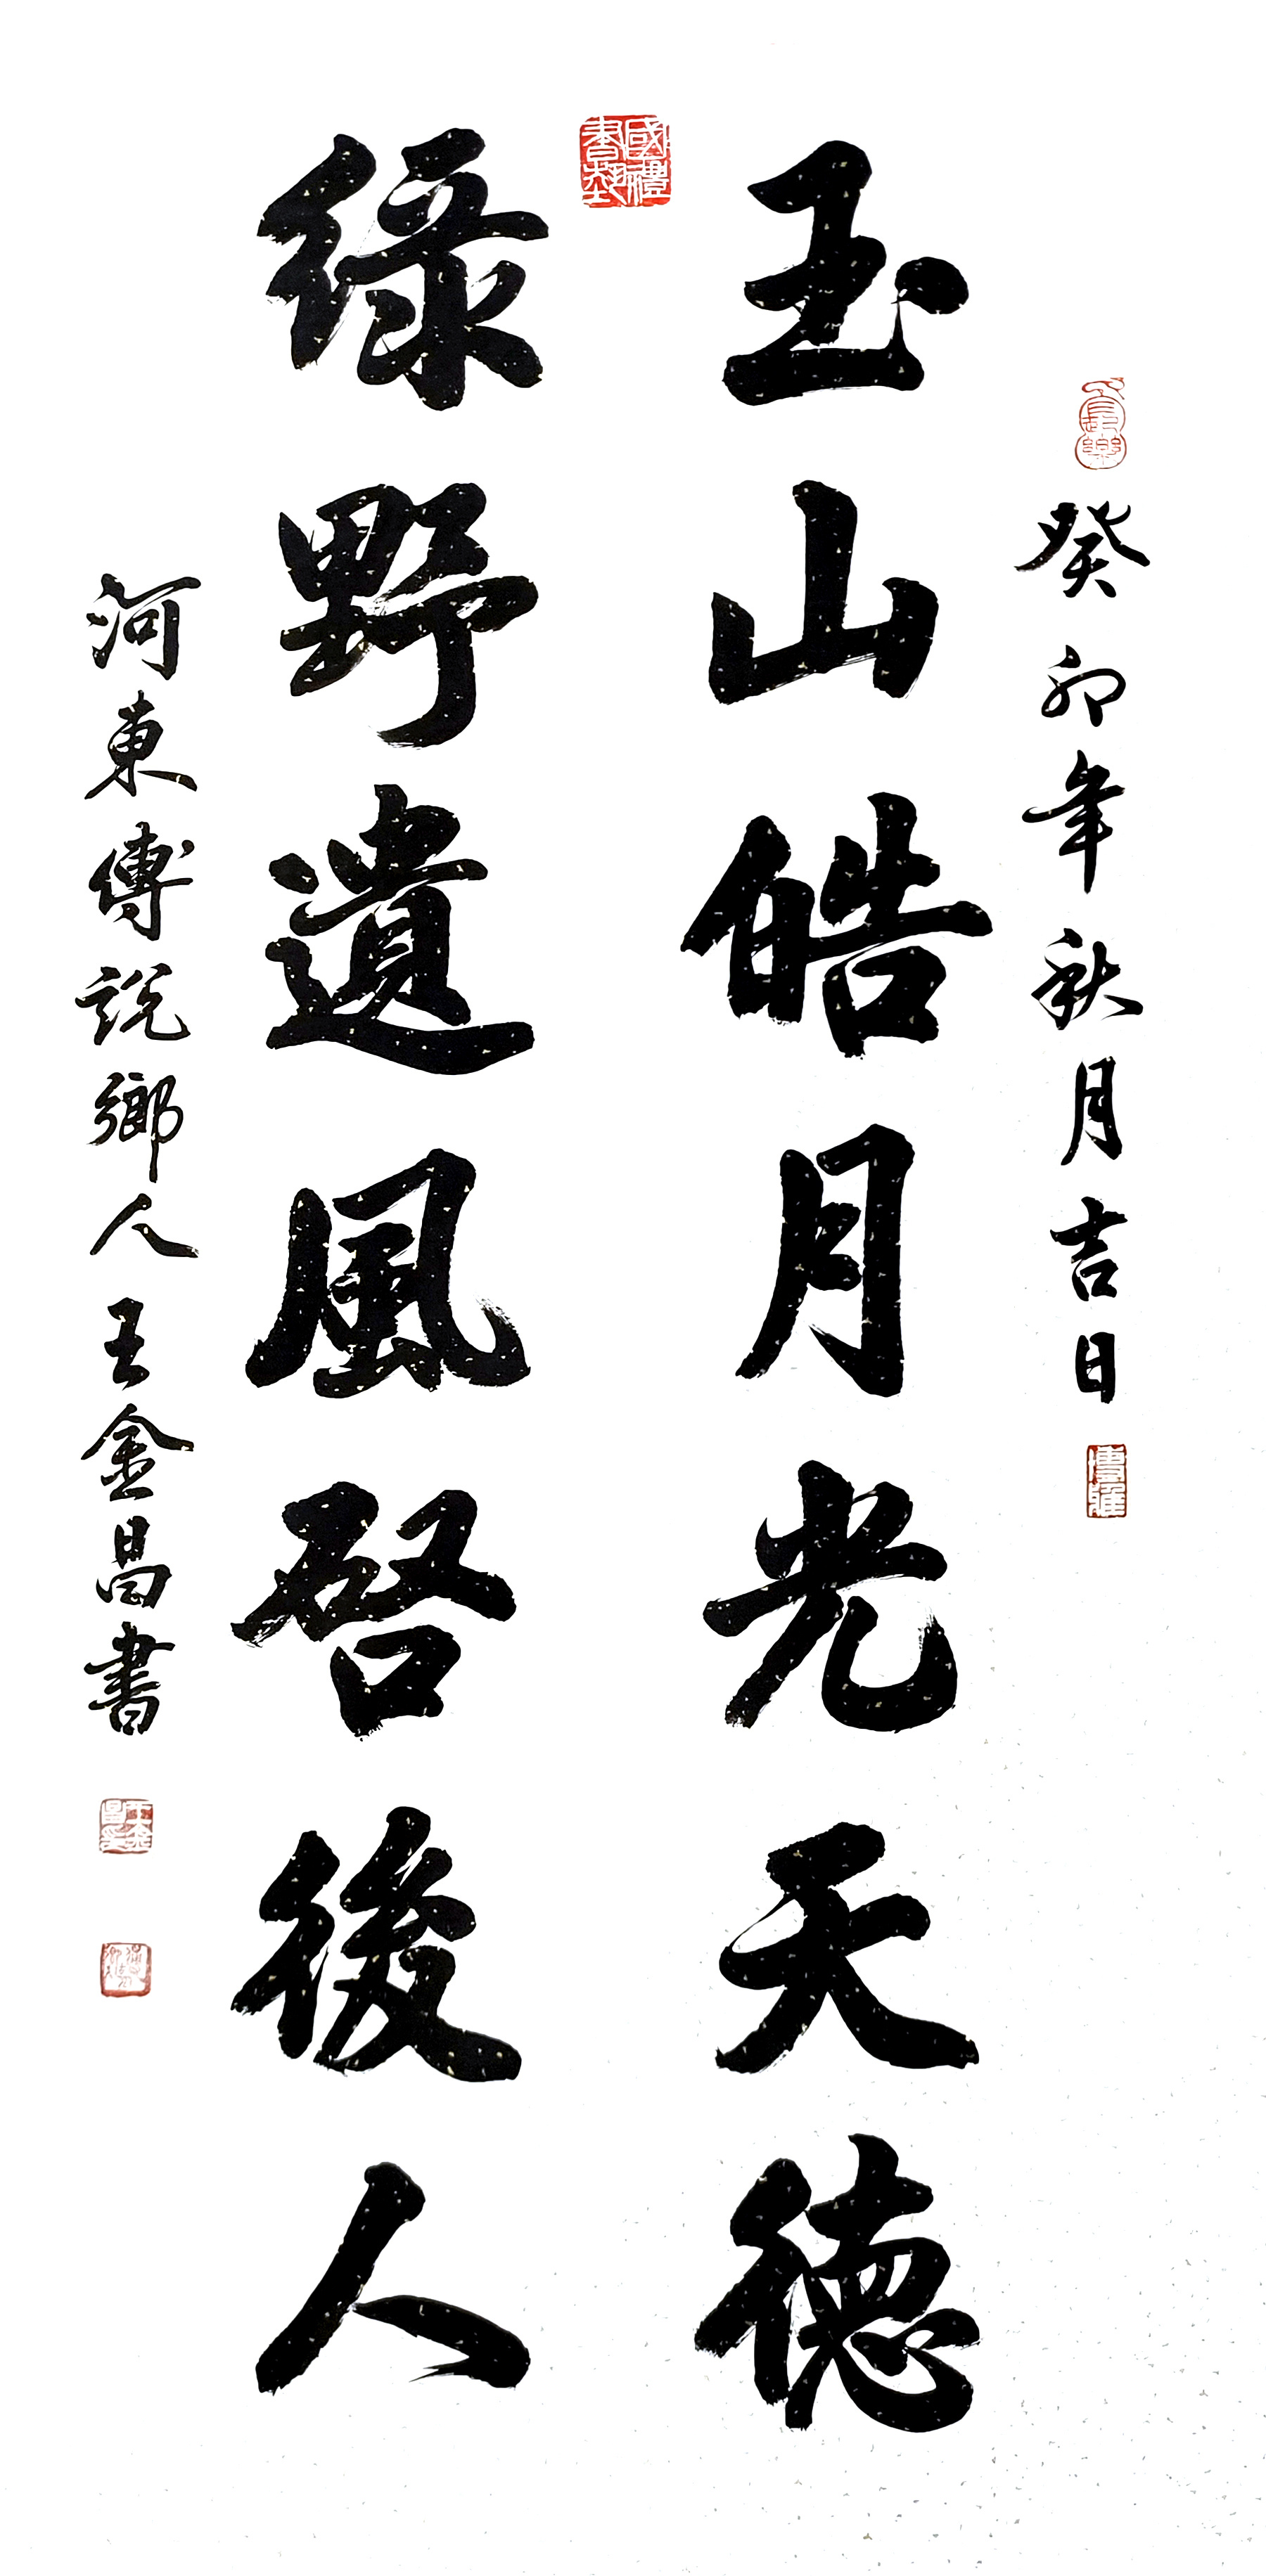 癸卯年秋月吉日
玉山皓月光天德
國禮書藝
綠野遺風啓後人
河東傅說鄉人王金昌書